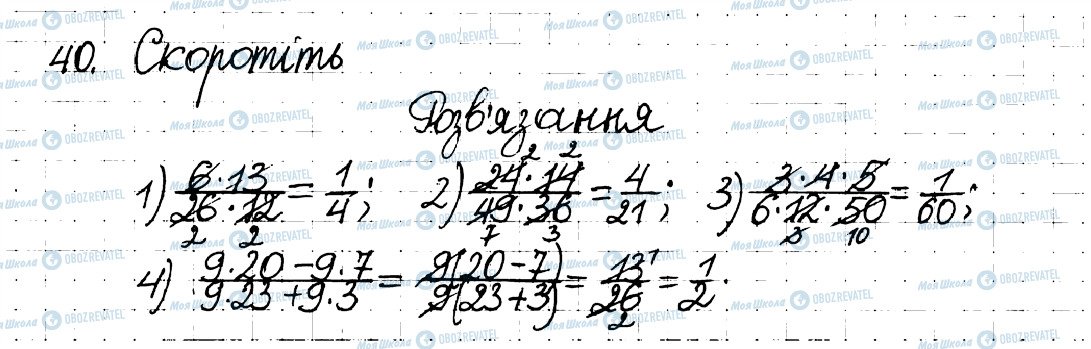 40. Скоротіть
Розв'язання
1) 6·13/26·12 = 1/4; 2) 24·14/49·36 = 4/21; 3) 3·4·5/6·12·50 = 1/60;
4) 9·20-9·7/9·23+9·3 = 9(20-7)/9(23+3) = 13/26 = 1/2.